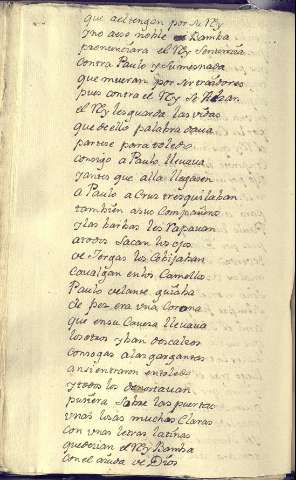 que al tengan por su Rey
y no aeso noble Bamba
pronunciara el Rey sentencia
contra Paulo y su mesnada
que mueran por ser traidores
pues contra el Rey se alzan
el Rey les guarda las vidas
que dello palabra daua
partese para toledo
consigo a Paulo lleuaua
y antes que alla llegasen
a Paulo a Crus tresquilaban
tambien a sus Compañeros
y las barbas les Rapauan
a todos sacan los ojos
de Sergas los Cobijaban
Caualgan en los Camellos
Paulo delante guiaba
de pez era vna Corona
que en su Caueza lleuaua
los otros yban descalzos
con sogas a las gargantas
ansi entraron en toledo
y todos los denostauan
pusiera sobre las puertas
vnas losas muchas Claras
con vnas letras latinas
que dezian el Rey Bamba
con el aiuda de Dios